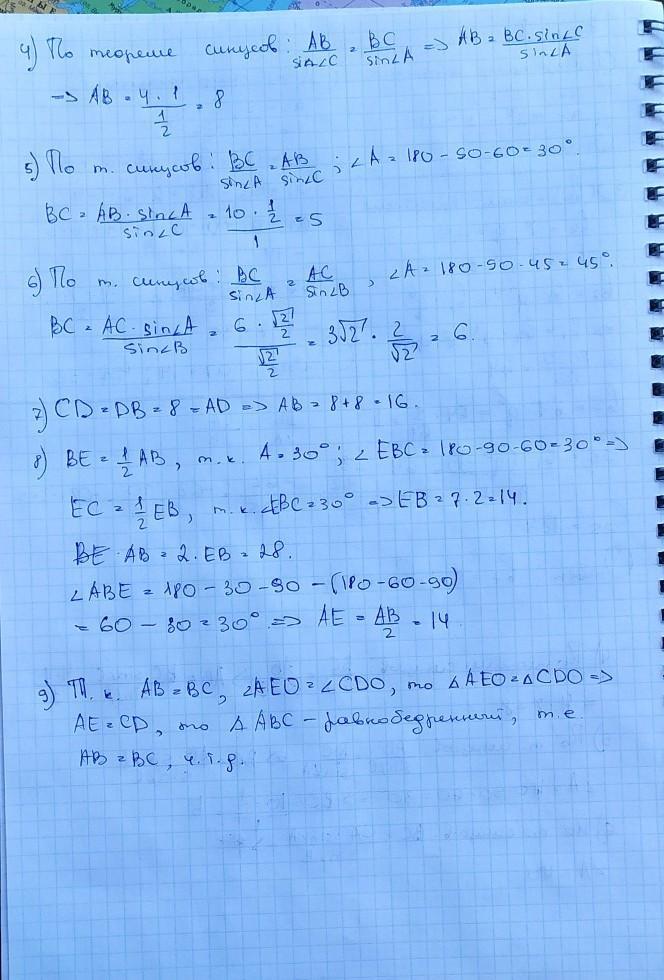 4) По теореме синусов: AB/sin∠C = BC/sin∠A => AB = BC·sin∠C/sin∠A
=> AB = 4·1/(1/2) = 8
5) По т. синусов: BC/sin∠A = AB/sin∠C; ∠A = 180-90-60=30°.
BC = AB·sin∠A/sin∠C = (10·1/2)/1 = 5
6) По т. синусов: BC/sin∠A = AC/sin∠B, ∠A = 180-90-45 = 45°.
BC = AC·sin∠A/sin∠B = (6·√2/2)/(√2/2) = 3√2 · 2/√2 = 6.
7) CD = DB = 8 = AD => AB = 8+8 = 16.
8) BE = 1/2 AB, т.к. A = 30°; ∠EBC = 180-90-60=30° =>
EC = 1/2 EB, т.к. ∠EBC = 30° => EB = 7·2=14.
AB = 2·EB = 28.
∠ABE = 180-30-90-(180-60-90)
= 60-30=30° => AE = AB/2 = 14
9) Т.к. AB = BC, ∠AEO = ∠CDO, то △AEO = △CDO =>
AE = CD, то △ABC - равнобедренный, т.е.
AB = BC, ч.т.д.